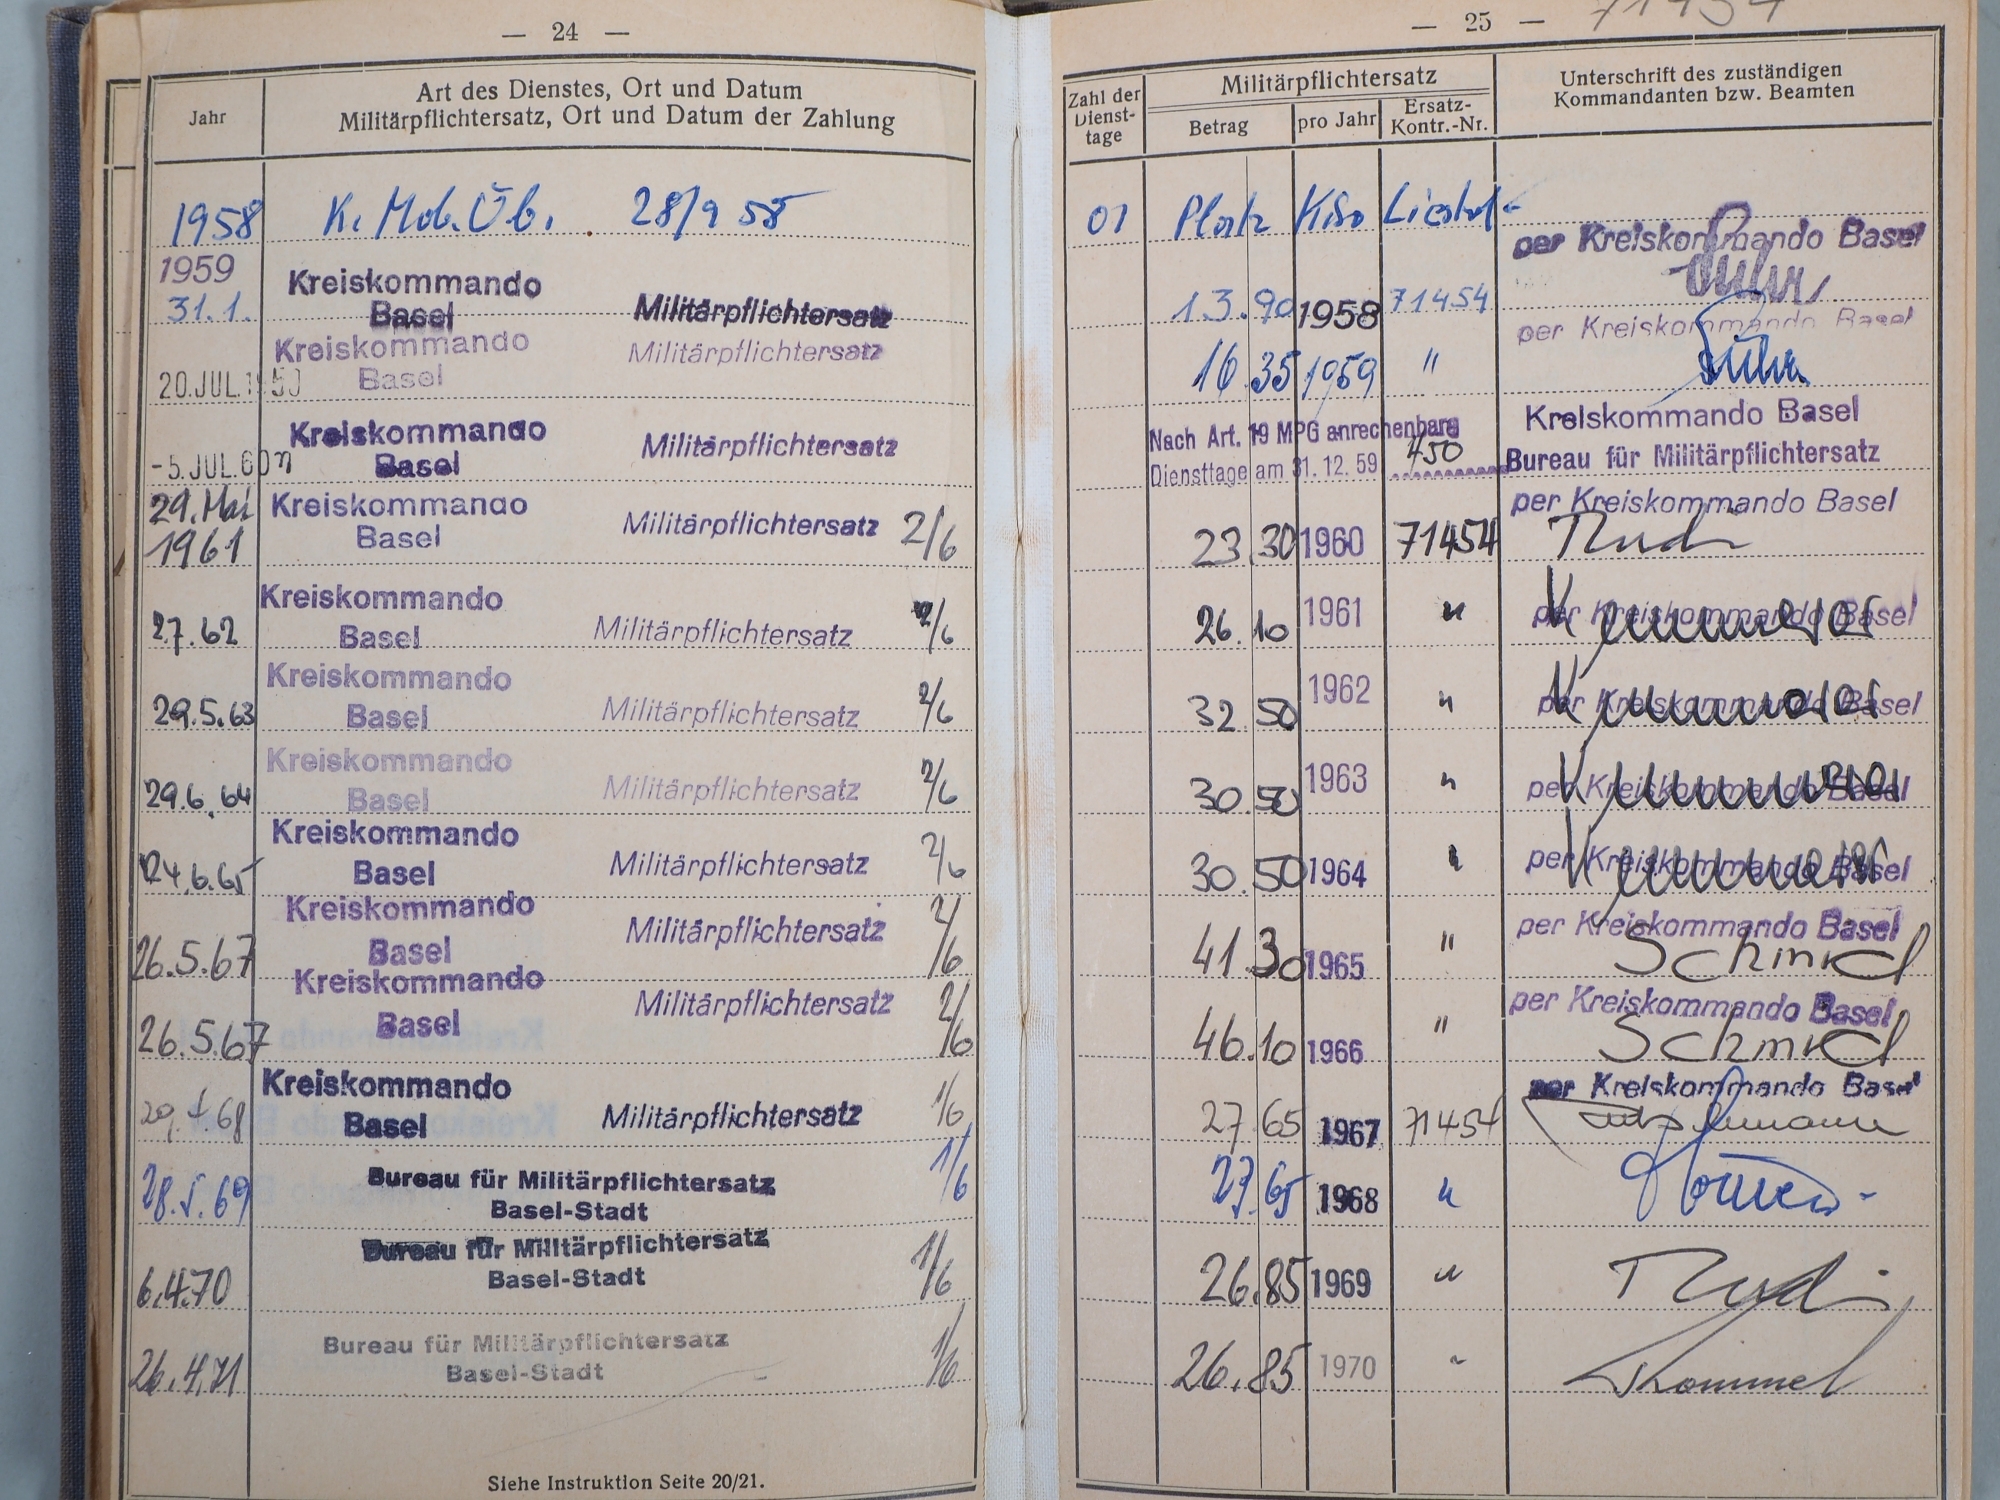 — 24 —
Jahr
Art des Dienstes, Ort und Datum
Militärpflichtersatz, Ort und Datum der Zahlung
1958 K. Mob. Üb. 28/9 58
1959
31.1. Kreiskommando Basel Militärpflichtersatz
20.JUL.1950 Kreiskommando Basel Militärpflichtersatz
-5.JUL.60 Kreiskommando Basel Militärpflichtersatz
29. Mai 1961 Kreiskommando Basel Militärpflichtersatz 2/6
2.7.62 Kreiskommando Basel Militärpflichtersatz 2/6
29.5.63 Kreiskommando Basel Militärpflichtersatz 2/6
29.6.64 Kreiskommando Basel Militärpflichtersatz 2/6
24.6.65 Kreiskommando Basel Militärpflichtersatz 2/6
26.5.67 Kreiskommando Basel Militärpflichtersatz 2/6
26.5.67 Kreiskommando Basel Militärpflichtersatz 2/6
68 Kreiskommando Basel Militärpflichtersatz 1/6
28.5.69 Bureau für Militärpflichtersatz Basel-Stadt 1/6
6.4.70 Bureau für Militärpflichtersatz Basel-Stadt 1/6
26.4.71 Bureau für Militärpflichtersatz Basel-Stadt 1/6
Siehe Instruktion Seite 20/21.
— 25 — 71454
Zahl der Dienst-tage
Militärpflichtersatz
Betrag pro Jahr Ersatz-Kontr.-Nr.
Unterschrift des zuständigen
Kommandanten bzw. Beamten
01 Platz Kdo Liestal
per Kreiskommando Basel
13.90 1958 71454
per Kreiskommando Basel
16.35 1959 "
Kreiskommando Basel
Nach Art. 19 MPG anrechenbare
Diensttage am 31.12.59 450 Bureau für Militärpflichtersatz
per Kreiskommando Basel
23.30 1960 71454
26.10 1961 " per Kreiskommando Basel
32.50 1962 " per Kreiskommando Basel
30.50 1963 " per Kreiskommando Basel
30.50 1964 " per Kreiskommando Basel
per Kreiskommando Basel
41.30 1965 " Schmid
per Kreiskommando Basel
46.10 1966 " Schmid
per Kreiskommando Basel
27.65 1967 71454
27.65 1968 "
26.85 1969 "
26.85 1970 "